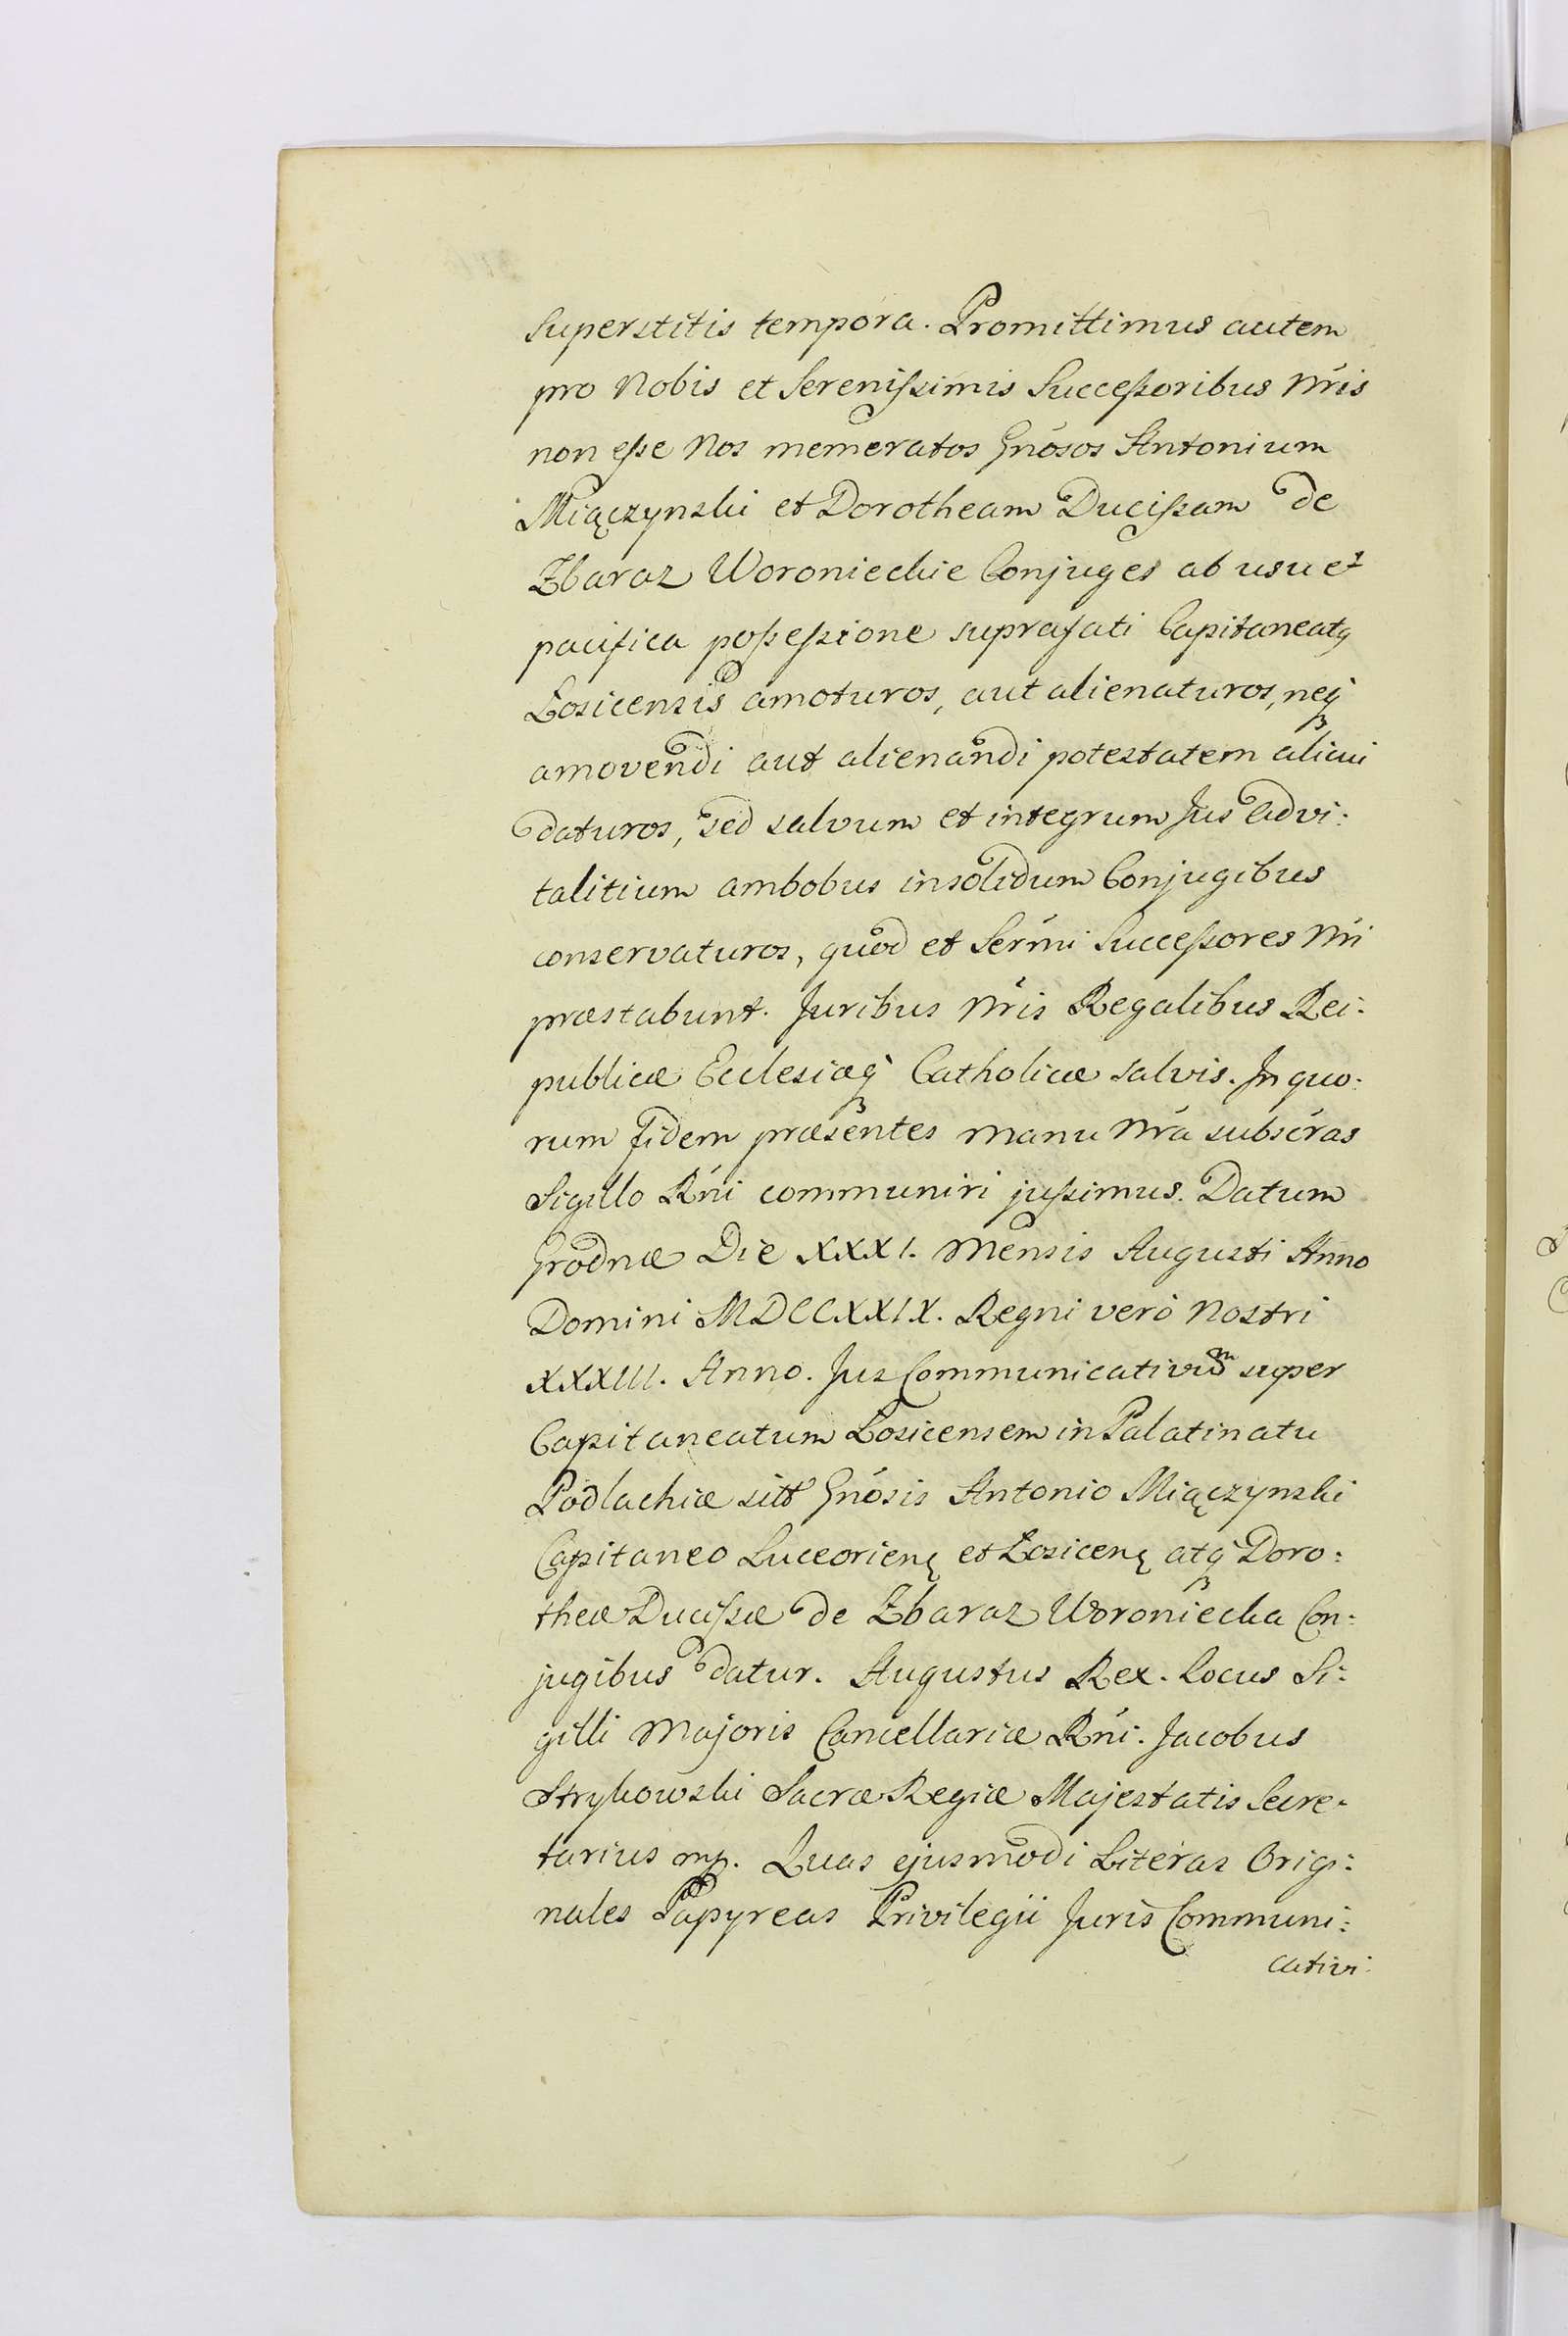 superstitis tempora. Promittimus autem
pro Nobis et Serenissimis Successoribus Nris
non esse Nos memeratos Gnosos Antonium
Miączynski et Dorotheam Ducissam de
Zbaraz Woronieckie Conjuges ab usu et
pacifica possessione suprafati Capitaneatq
Łosicensis amoturos, aut alienaturos, neq
amovendi aut alienandi potestatem alicui
daturos, sed salvum et integrum Jus advi:
talitium ambobus insolidum Conjugibus
conservaturos, quod et Sermi Successores Nri
præstabunt. Juribus Nris Regalibus Rei:
publicæ Ecclesiæq Catholicæ salvis. In quo:
rum fidem præsentes manu Nra subscras
Sigillo Rni communiri jussimus. Datum
Grodnæ Die XXXI. Mensis Augusti Anno
Domini MDCCXXIX. Regni vero Nostri
XXXIII. Anno. Jus Communicativum super
Capitaneatum Łosicensem in Palatinatu
Podlachiæ sitt Gnosis Antonio Miączynski
Capitaneo Luceorienę et Łosicenę atq Doro:
theæ Ducissæ de Zbaraz Woroniecka Con:
jugibus datur. Augustus Rex. Locus Si:
gilli Majoris Cancellariæ Rni. Jacobus
Strykowski Sacræ Regiæ Majestatis Secre:
tarius mp. Quas ejusmodi Literas Origi:
nales Papyreas Privilegii Juris Communi:
cativi: